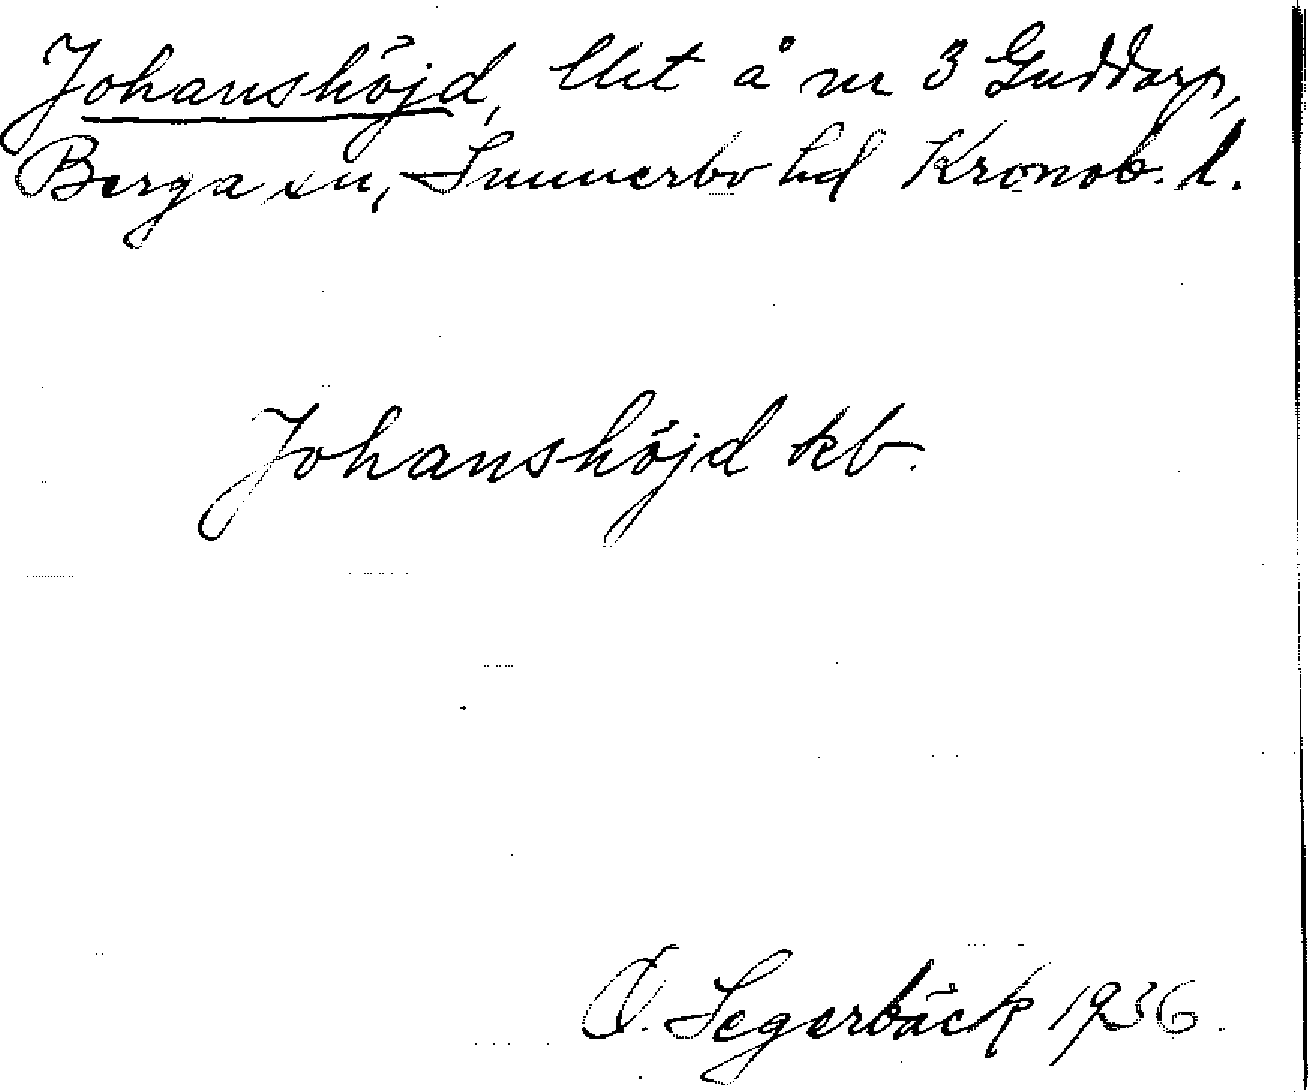 Johanshöjd, lht å nr 3 Guddarp,
Berga sn, Sunnerbo hd Kronob. l.
Johanshöjd kb.
O. Segerbäck 1936.